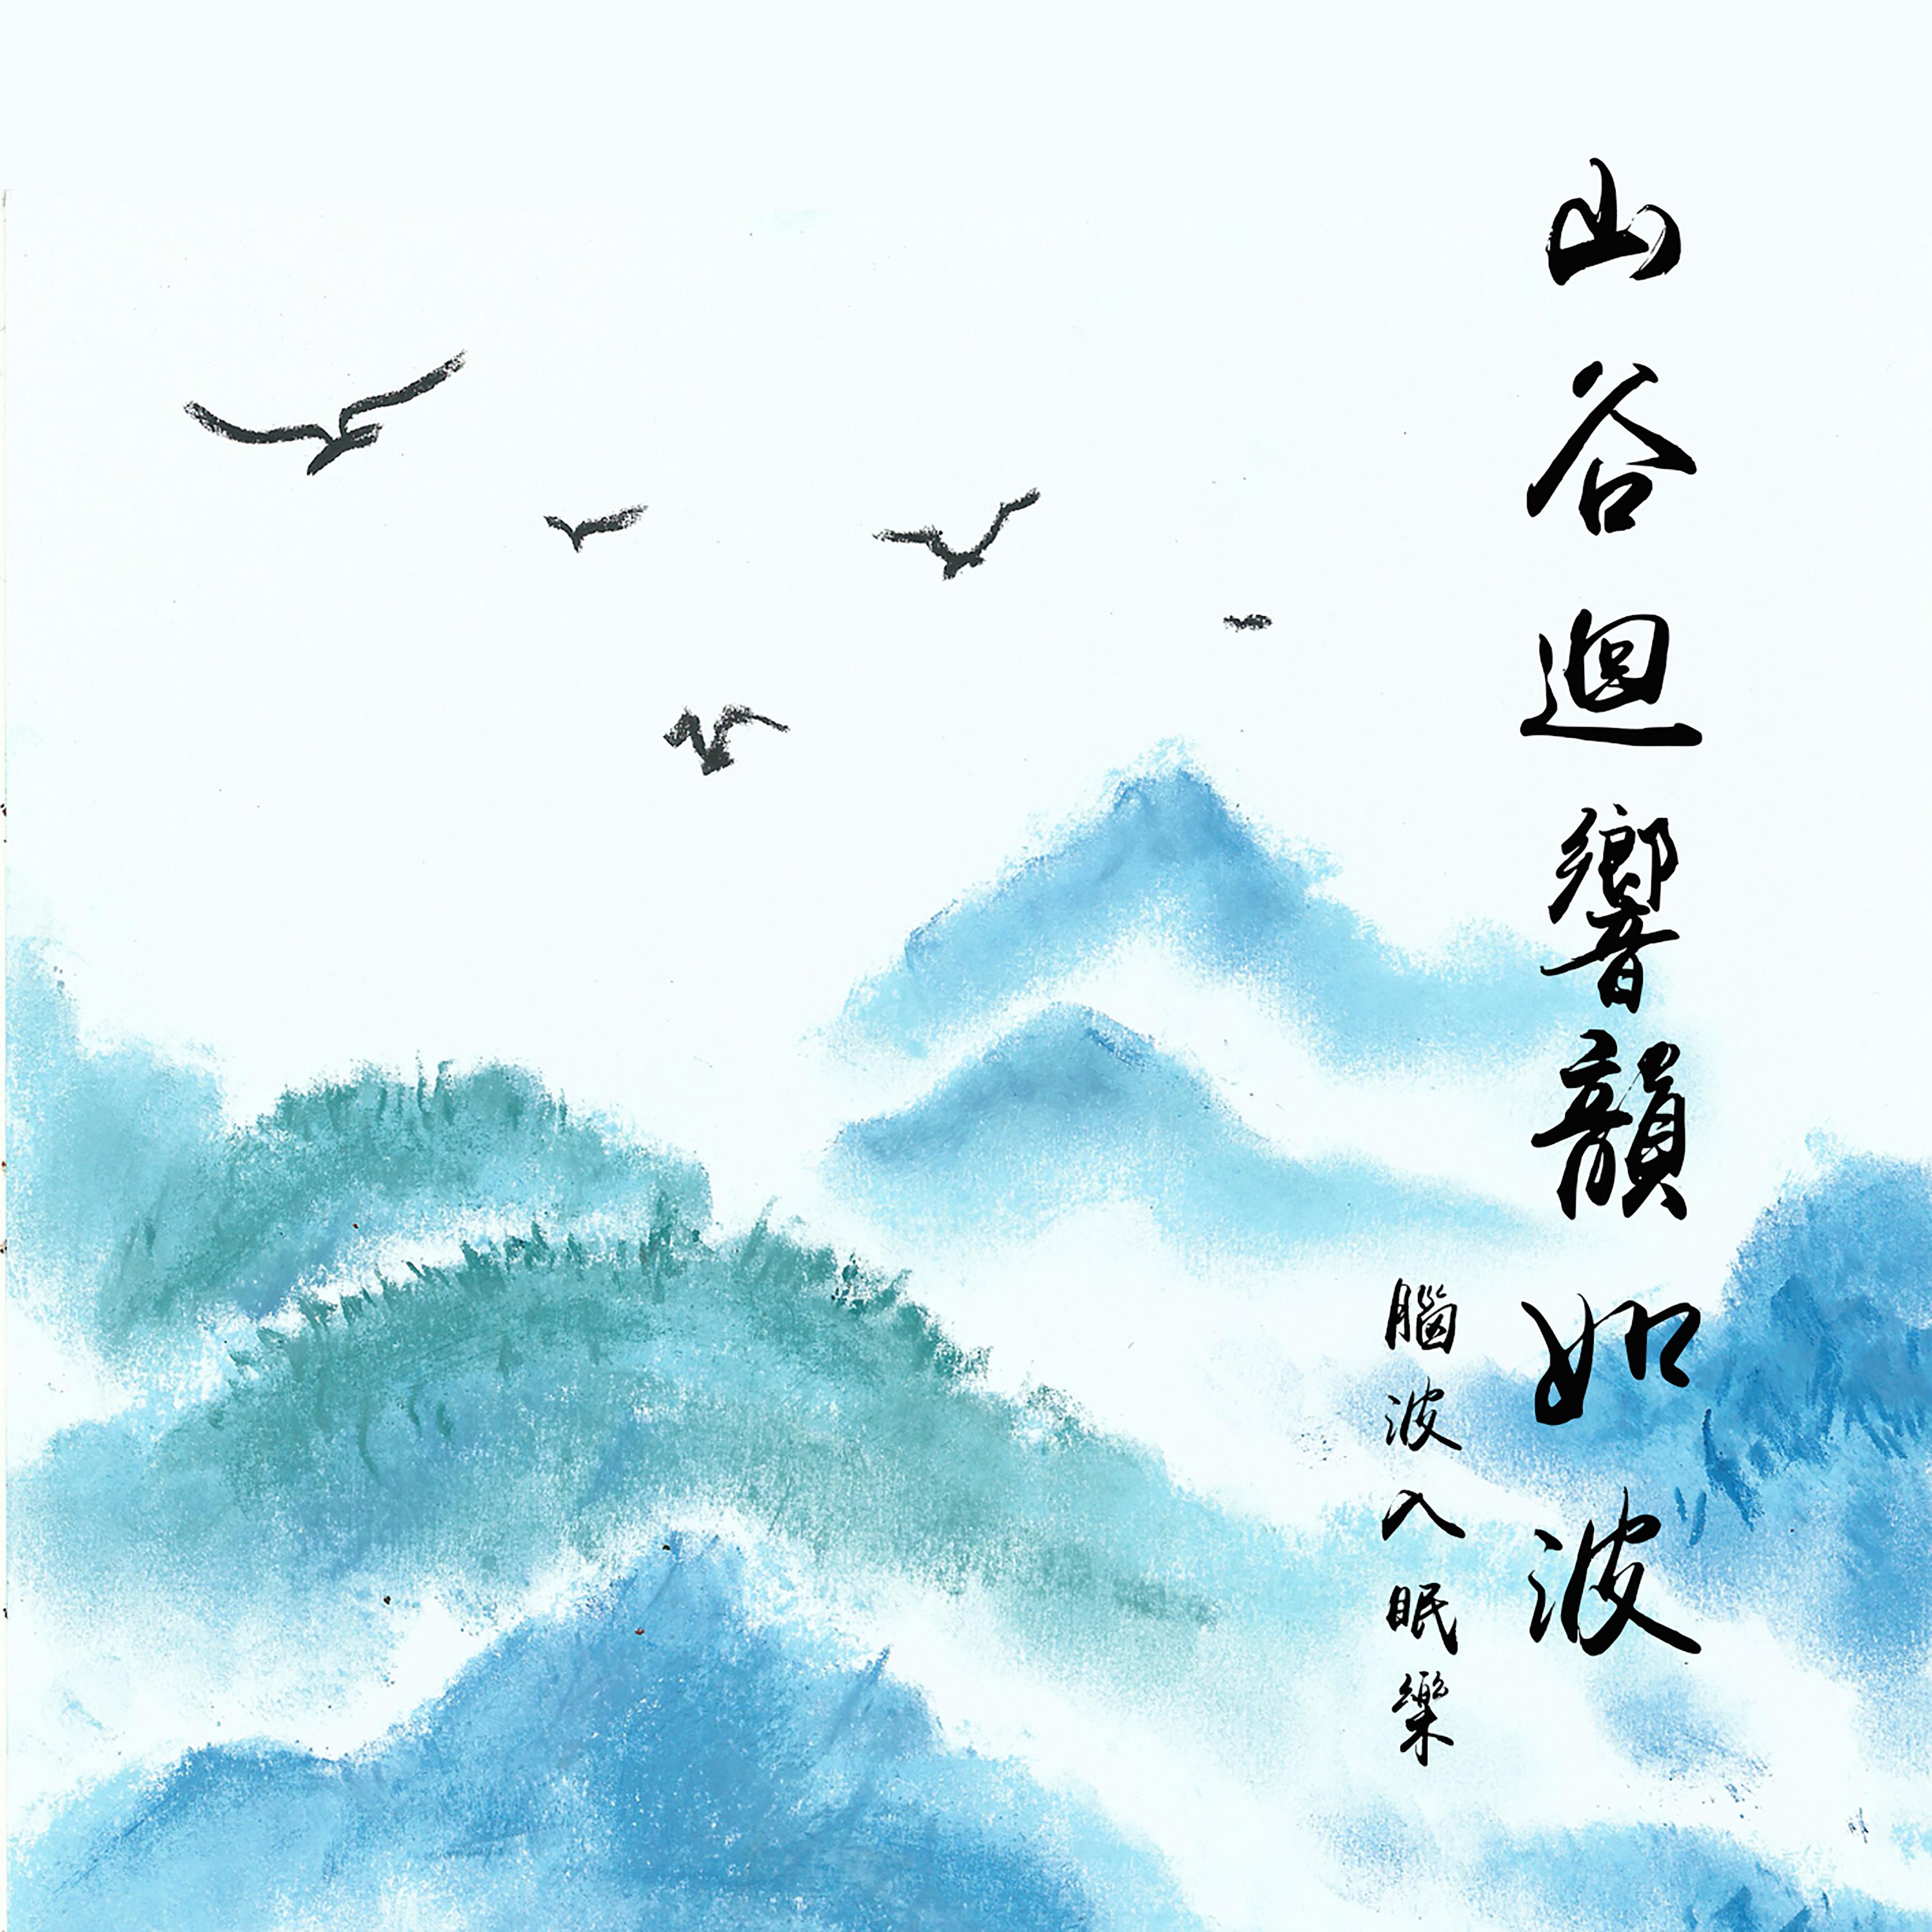 山谷迴響韻如波
腦波入眠樂